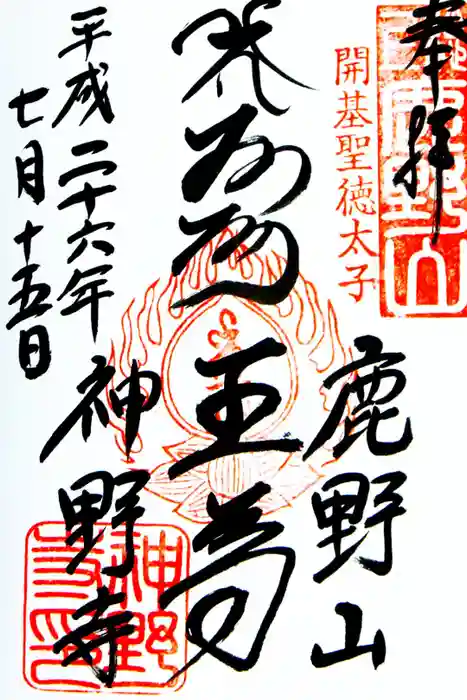 奉拝
開基聖徳太子
鹿野山
王尊
平成二十六年
七月十五日
神野寺
神野寺印